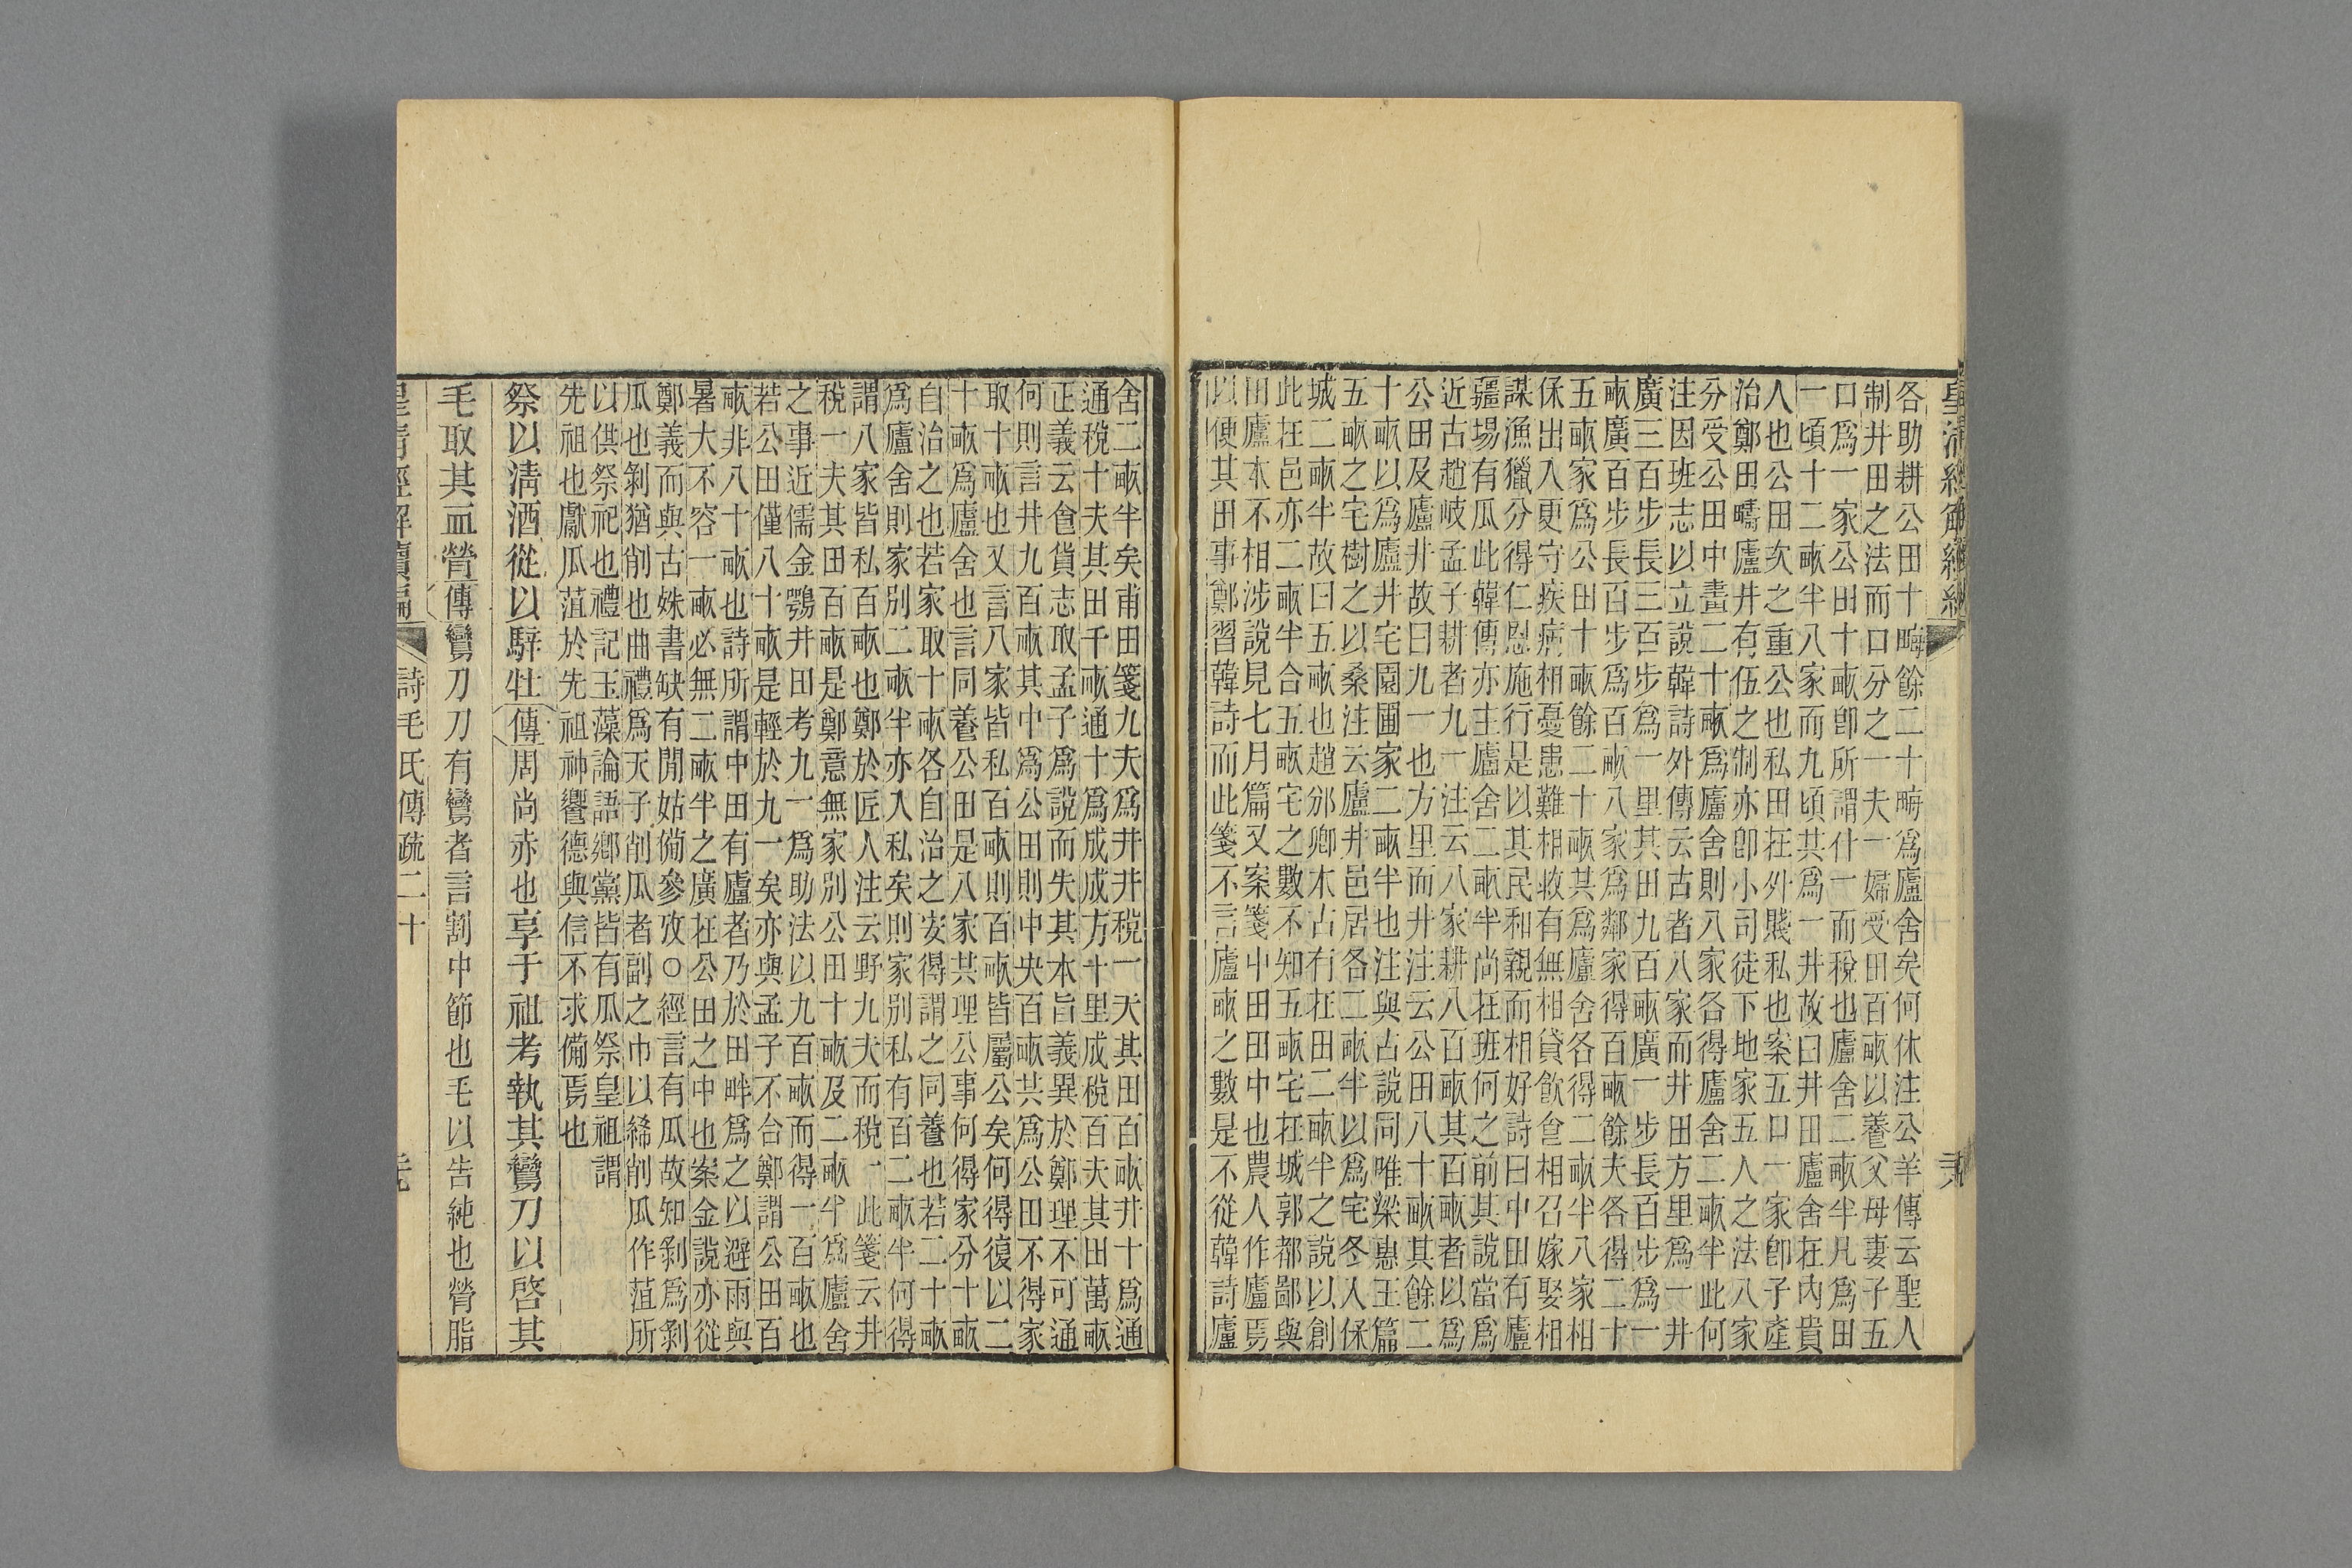 各助耕公田十畮餘二十畮爲廬舍矣何休注公羊傳云聖人
制井田之法而口分之一夫一婦受田百畞以養父母妻子五
口爲一家公田十畞卽所謂什一而稅也廬舍二畞半凡爲田
一頃十二畞半八家而九頃共爲一井故曰井田廬舍在內貴
人也公田次之重公也私田在外賤私也案五口一家卽子產
治鄭田疇廬井有伍之制亦卽小司徒下地家五人之法八家
分受公田中畫二十畞爲廬舍則八家各得廬舍二畞半此何
注因班志以立說韓詩外傳云古者八家而井田方里爲一井
廣三百步長三百步爲一里其田九百畞廣一步長百步爲一
畞廣百步長百步爲百畞八家爲鄰家得百畞餘夫各得二十
五畞家爲公田十畞餘二十畞共爲廬舍各得二畞半八家相
保出入更守疾病相憂患難相救有無相貸飮食相召嫁娶相
謀漁獵分得仁恩施行是以其民和親而相好詩曰中田有廬
疆場有瓜此韓傳亦主廬舍二畞半尚在班何之前其說當爲
近古趙岐孟子耕者九一注云八家耕八百畞其百畞者以爲
公田及廬井故曰九一也方里而井注云公田八十畞其餘二
十畞以爲廬井宅園圃家二畞半也注與古說同唯梁惠王篇
五畞之宅樹之以桑注云廬井邑居各二畞半以爲宅冬入保
城二畞半故曰五畞也趙邠卿木古有在田二畞半之說以創
此在邑亦二畞半合五畞宅之數不知五畞宅在城郭都鄙與
田廬本不相涉說見七月篇又案箋中田田中也農人作廬焉
以便其田事鄭習韓詩而此箋不言廬畞之數是不從韓詩廬
舍二畞半矣甫田箋九夫爲井井稅一夫其田百畞井十爲通
通稅十夫其田千畞通十爲成成方十里成稅百夫其田萬畞
正義云食貨志取孟子爲說而失其本旨義異於鄭理不可通
何則言井九百畞其中爲公田則中央百畞共爲公田不得家
取十畞也又言八家皆私百畞則百畞皆屬公矣何得復以二
十畞爲廬舍也言同養公田是八家共理公事何得家分十畞
自治之也若家取十畞各自治之安得謂之同養也若二十畞
爲廬舍則家別二畞半亦入私矣則家別私有百二畞半何得
謂八家皆私百畞也鄭於匠人注云野九夫而稅一此箋云井
稅一夫其田百畞是鄭意無家別公田十畞及二畞半爲廬舍
之事近儒金鶚井田考九一爲助法以九百畞而得一百畞也
若公田僅八十畞是輕於九一矣亦與孟子不合鄭謂公田百
畞非八十畞也詩所謂中田有廬者乃於田畔爲之以避雨與
暑大不容一畞必無二畞半之廣在公田之中也案金說亦從
鄭義而與古姝書缺有閒姑僃參攷○經言有瓜故知剝爲剝
瓜也剝猶削也曲禮爲天子削瓜者副之巾以絺削瓜作菹所
以供祭祀也禮記玉藻論語鄉黨皆有瓜祭皇祖謂
先祖也獻瓜菹於先祖神饗德與信不求僃焉也
祭以淸酒從以騂牡傳周尚赤也享于祖考執其鸞刀以啓其
毛取其血膋傳鸞刀刀有鸞者言割中節也毛以告純也膋脂
皇淸經解續編 詩毛氏傳疏二十